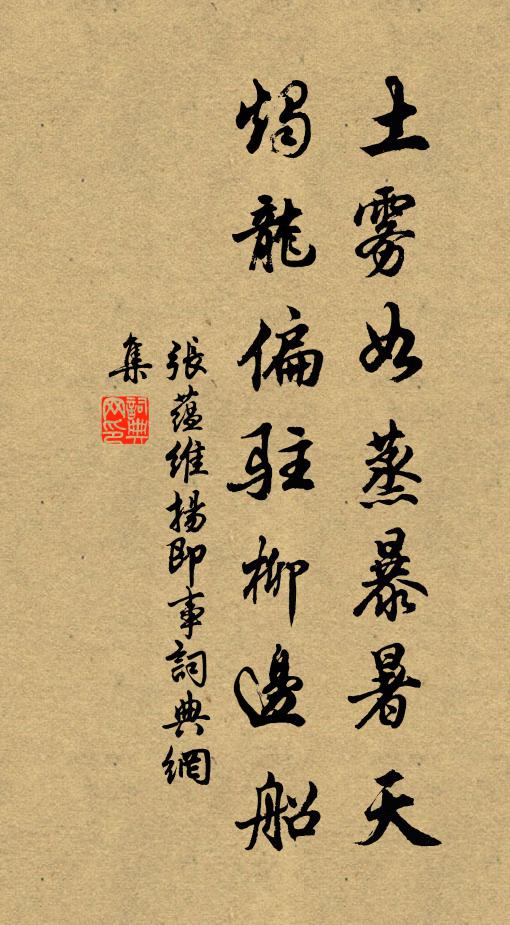 土雾如蒸暴暑天
燭龍偏駐柳邊船
張蘊維揚即事詞典網
集
詞典网印